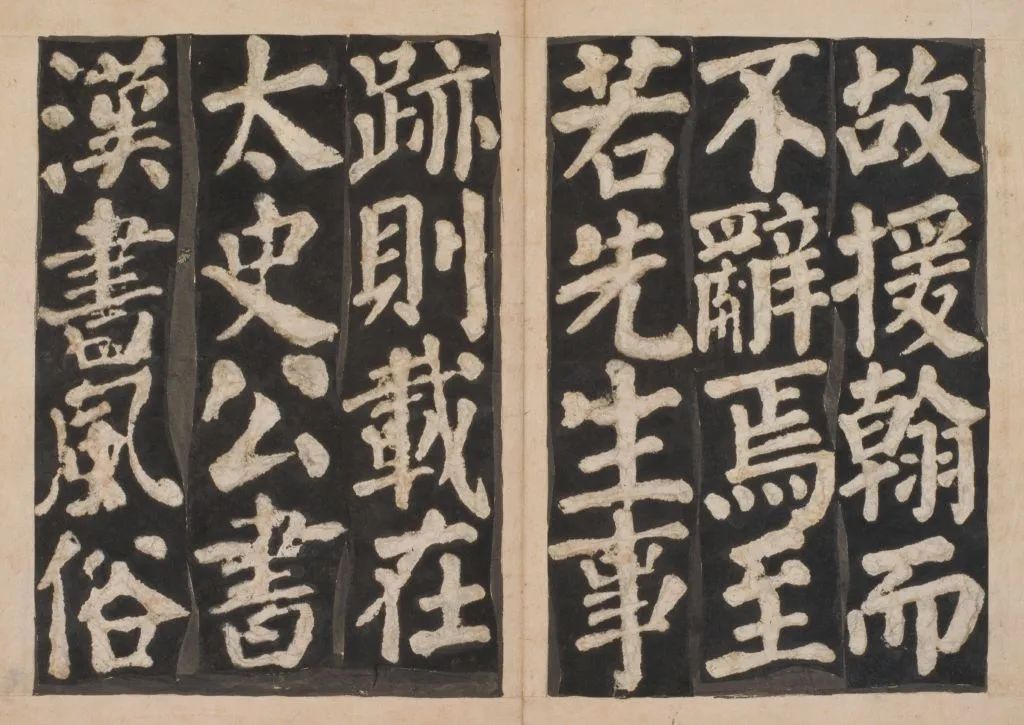 故援翰而
不辭焉至
若先生事
跡則載在
太史公書
漢書風俗